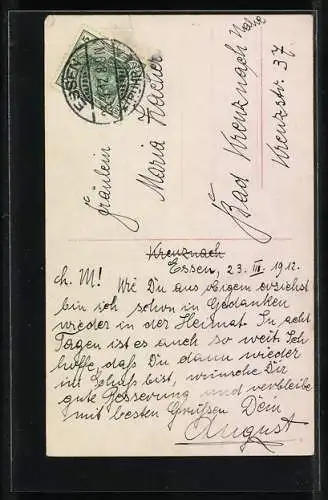 ESSEN
(RUHR)
Fräulein
Maria
Bad Kreuznach
Kreuzstr. 37
Kreuznach
Essen, 23. III. 1912.
Ch. M! Wie Du aus obigem ersiehst
bin ich schon in Gedanken
wieder in der Heimat. In acht
Tagen ist es auch so weit. Ich
hoffe, daß Du dann wieder
im Schuß bist, wünsche Dir
gute Besserung und verbleibe
mit besten Grüßen Dein
August